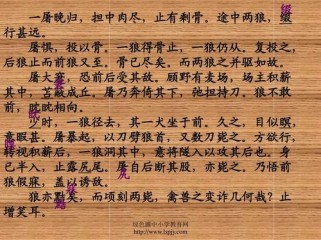 一屠晚归，担中肉尽，止有剩骨。途中两狼，缀
行甚远。
屠惧，投以骨。一狼得骨止，一狼仍从。复投之，
后狼止而前狼又至。骨已尽矣。而两狼之并驱如故。
屠大窘，恐前后受其敌。顾野有麦场，场主积薪
其中，苫蔽成丘。屠乃奔倚其下，弛担持刀。狼不敢
前，眈眈相向。
少时，一狼径去，其一犬坐于前。久之，目似瞑，
意暇甚。屠暴起，以刀劈狼首，又数刀毙之。方欲行，
转视积薪后，一狼洞其中，意将隧入以攻其后也。身
已半入，止露尻尾。屠自后断其股，亦毙之。乃悟前
狼假寐，盖以诱敌。
狼亦黠矣，而顷刻两毙，禽兽之变诈几何哉？止
增笑耳。
绿色圃中小学教育网